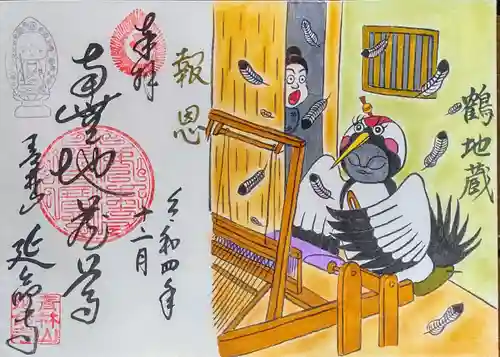 鶴地蔵
報恩
奉拝
南無地蔵尊
令和四年
十二月
延命寺